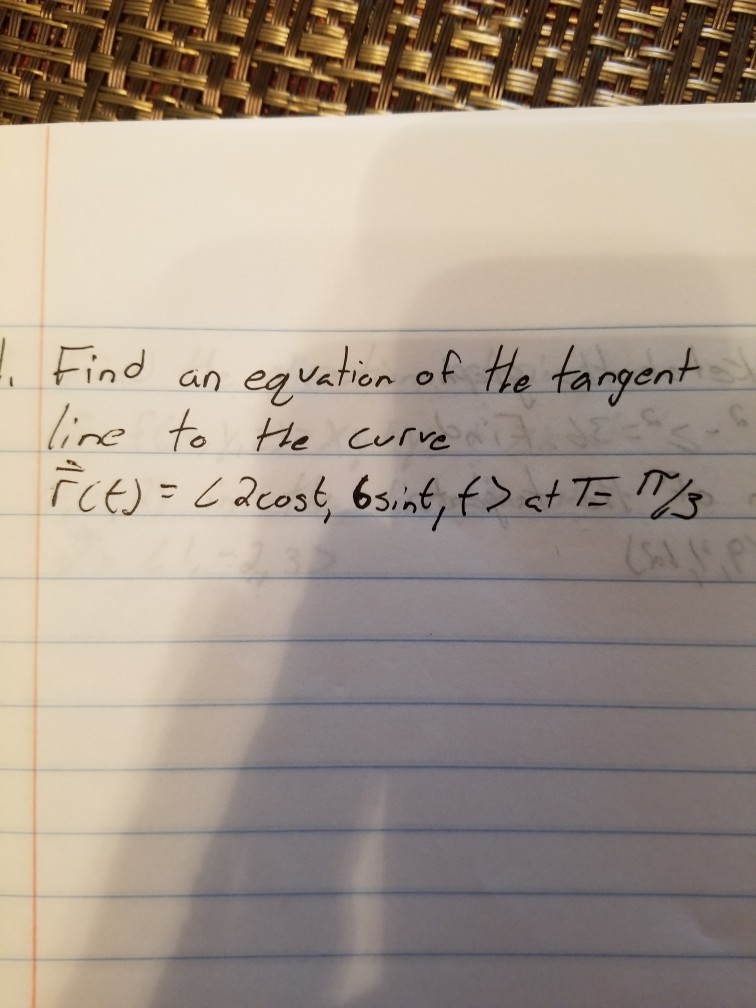 1. Find an equation of the tangent
line to the curve
r⃗(t) = < 2cost, 6sint, t > at T= π/3